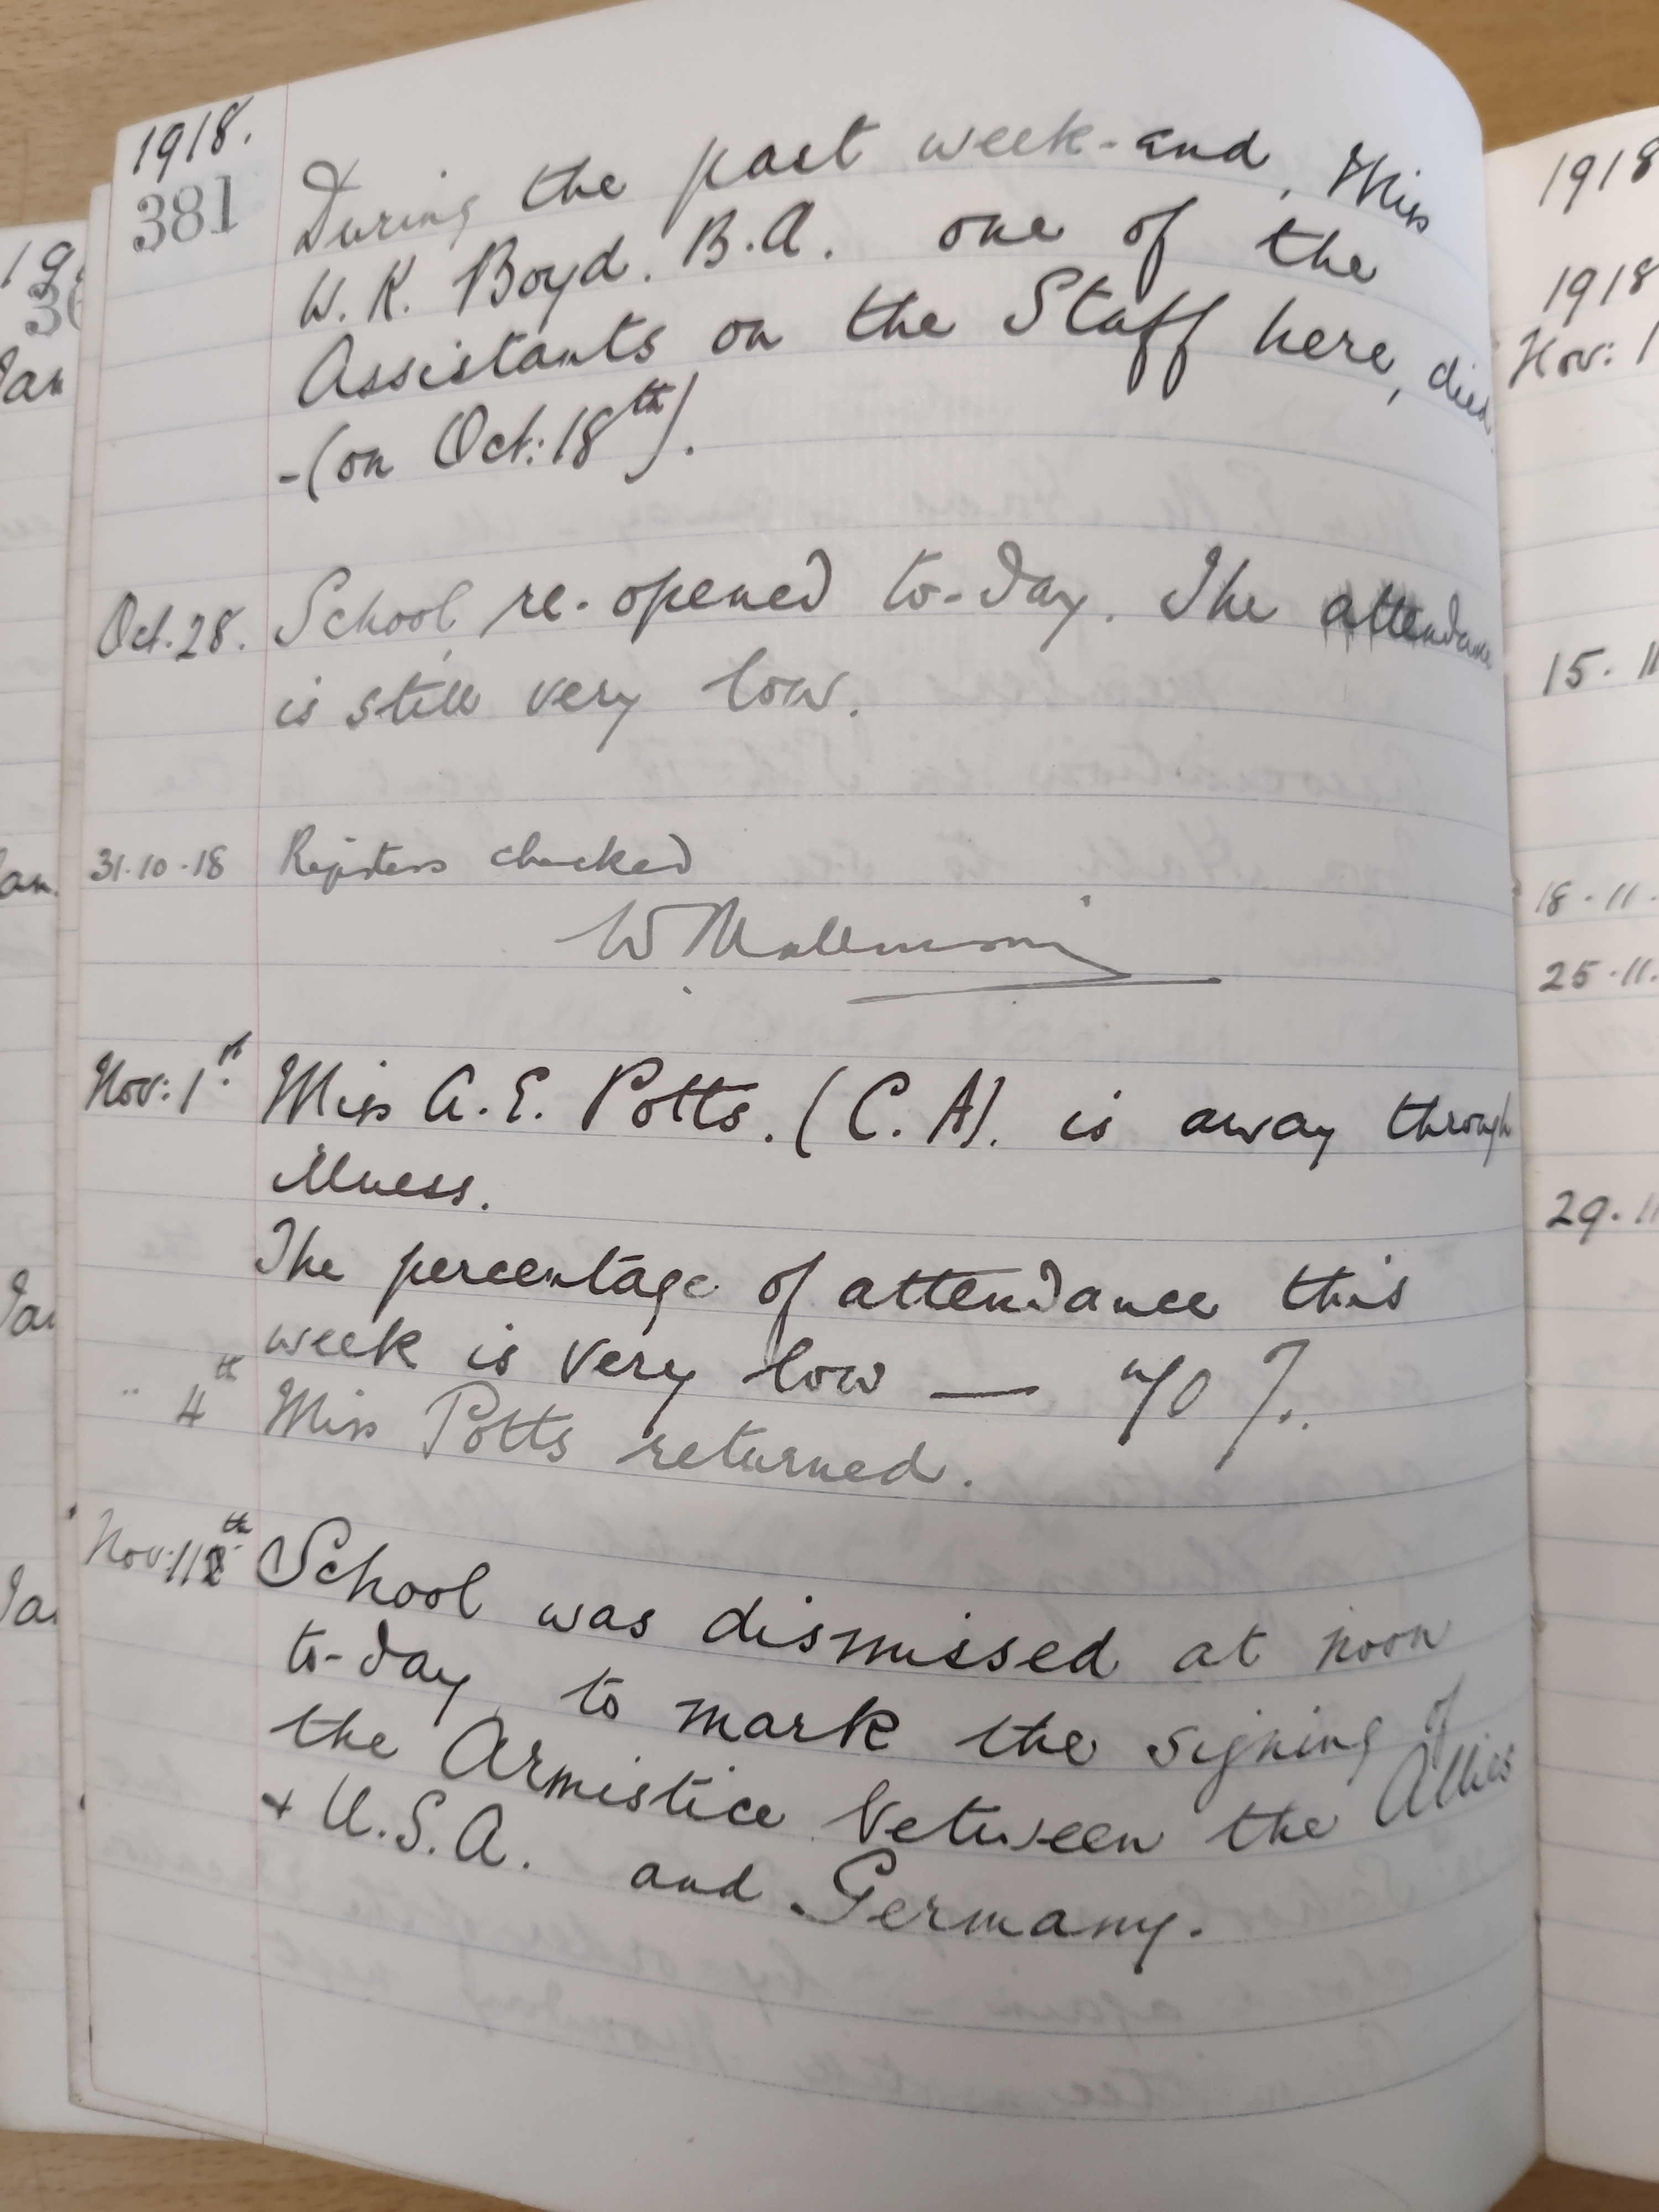 1918.
381
During the past week-end, Miss
W. K. Boyd. B.A. one of the
Assistants on the Staff here, died
-(on Oct: 18th).
Oct. 28. School re-opened to-day. The attendance
is still very low.
31.10.18 Registers checked
W
Nov: 1st Miss A. E. Potts. (C.A). is away through
illness.
The percentage of attendance this
week is very low — 70 %.
" 4th Miss Potts returned.
Nov: 11th School was dismissed at noon
to-day, to mark the signing of
the Armistice between the Allies
+ U.S.A. and Germany.
1918
1918
Nov: 1
15. 11
18.11.
25.11.
29.11